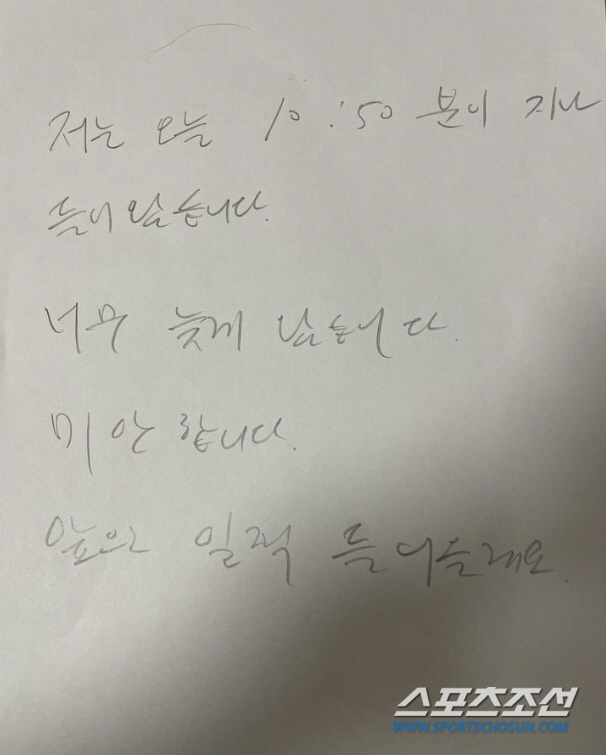 저는 오늘 10:50 분이 지나
들어 왔습니다.
너무 늦게 났습니다.
미안합니다.
앞으로 일찍
스포츠조선
WWW.SPORTSCHOSUN.COM